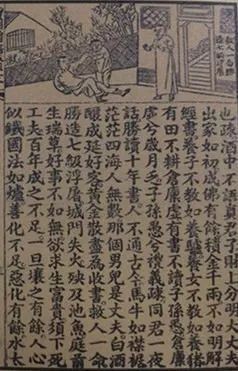 救人一命勝
造七級浮屠
也疎酒中不語真君子財上分明大丈夫
出家如初成佛有餘積金千兩不如明解
經書養子不教如養驢養女不教如養猪
有田不耕倉廩虛有書不讀子孫愚倉廩
虛兮歲月乏子孫愚兮禮義疎同君一夜
話勝讀十年書人不通古今馬牛如襟裾
茫茫四海人無數那個男兒是丈夫白酒
釀成延好客黃金散盡為收書救人一命
勝造七級浮屠城門失火殃及池魚庭前
生瑞草好事不如無欲求生富貴須下死
工夫百年成之不足一旦壞之有餘人心
似鐵國法如爐善化不足惡化有餘水太